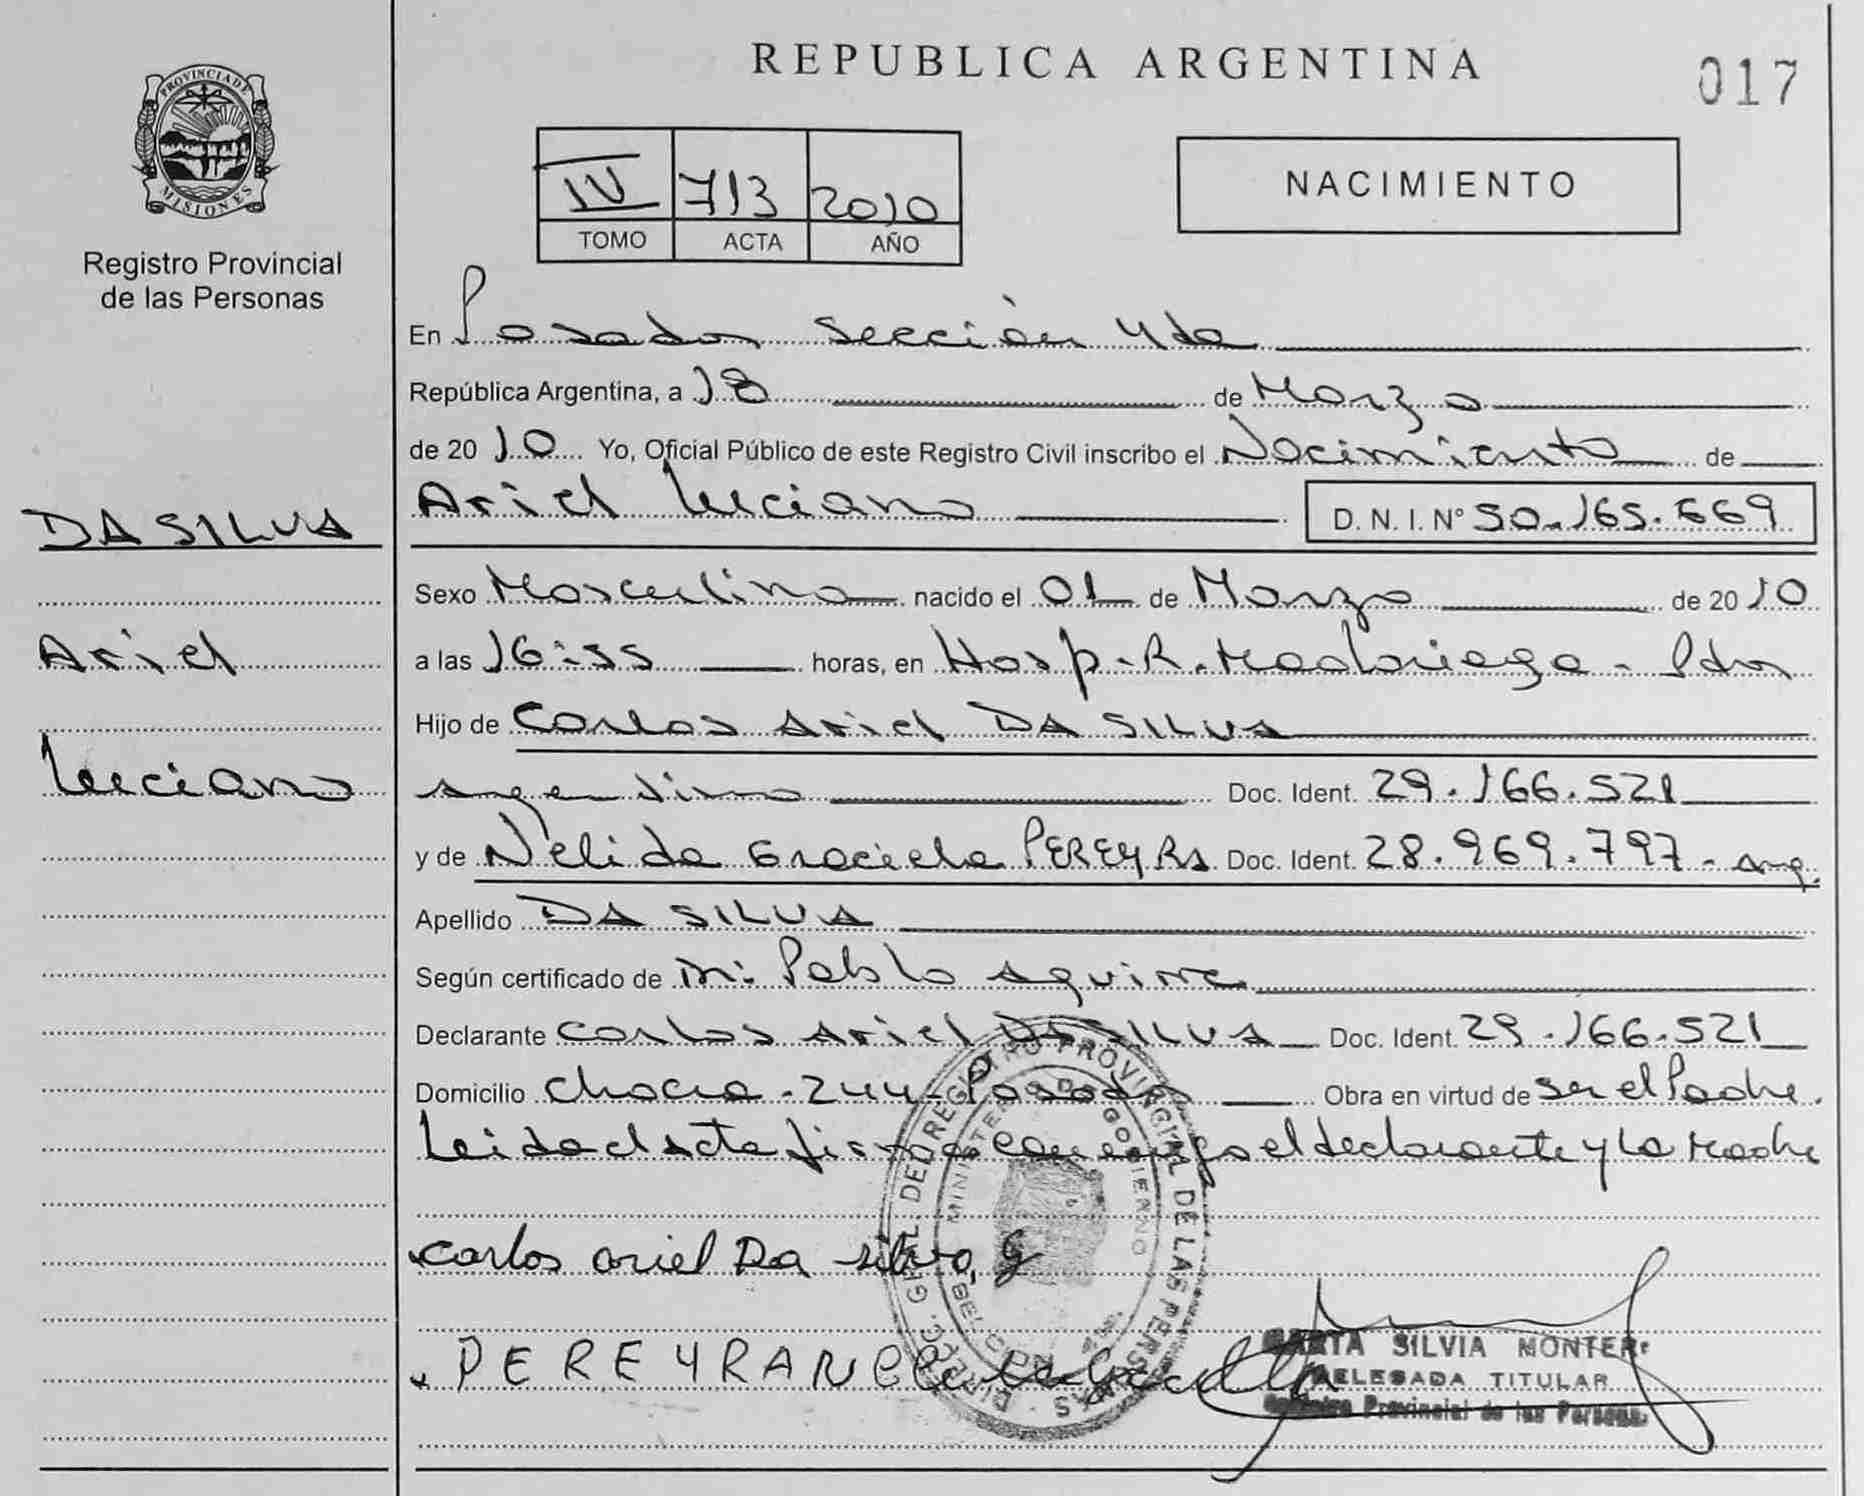 REPUBLICA ARGENTINA
017
PROVINCIA DE MISIONES
Registro Provincial
de las Personas
IV 713 2010
TOMO ACTA AÑO
NACIMIENTO
En Posadas Sección 4ta
República Argentina, a 18 de Marzo
de 2010 Yo, Oficial Público de este Registro Civil inscribo el Nacimiento de
Ariel Luciano D. N. I. N° 50.165.669
DA SILVA
Ariel
Luciano
Sexo Masculino nacido el 01 de Marzo de 2010
a las 16:55 horas, en Hosp. R. Madariaga - Pdas
Hijo de Carlos Ariel DA SILVA
argentino Doc. Ident. 29.166.521
y de Nelida Graciela PEREYRA Doc. Ident. 28.969.797 - arg.
Apellido DA SILVA
Según certificado de Pablo Aguirre
Declarante Carlos Ariel DA SILVA Doc. Ident. 29.166.521
Domicilio Chacra - 244 - Posadas Obra en virtud de ser el Padre.
Leida el acta firma conmigo el declarante y la Madre
carlos ariel Da silva, g
PEREYRA
DIRECC. GRAL. DEL REGISTRO PROVINCIAL DE LAS PERSONAS
MINISTERIO DE GOBIERNO
SILVIA MONTER
DELEGADA TITULAR
Provincial de las Personas